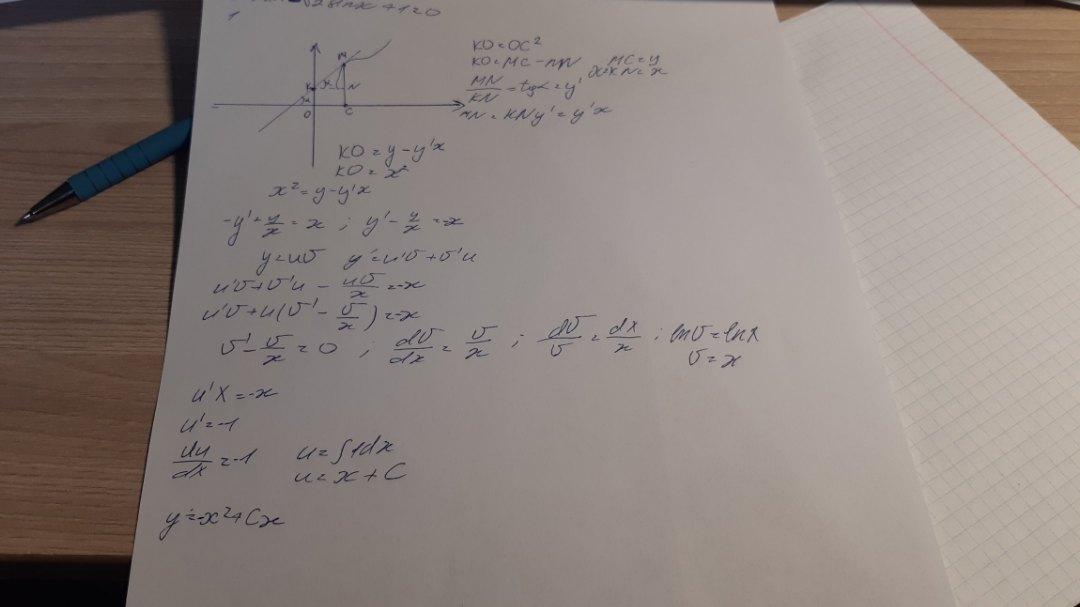 √2 sinx +1=0
1
KO=OC²
KO=MC-MN MC=y
KN=x
MN/KN = tgα = y'
MN = KN y' = y'x
M
K
N
O
C
KO = y-y'x
KO = x²
x² = y-y'x
-y'+y/x = x ; y' - y/x =-x
y=uv y'=u'v+v'u
u'v+v'u - uv/x =-x
u'v+u(v' - v/x) =-x
v' - v/x = 0 ; dv/dx = v/x ; dv/v = dx/x ; lnv=lnx
v=x
u'x =-x
u'=-1
du/dx =-1 u=∫1dx
u=x+C
y=-x²+Cx